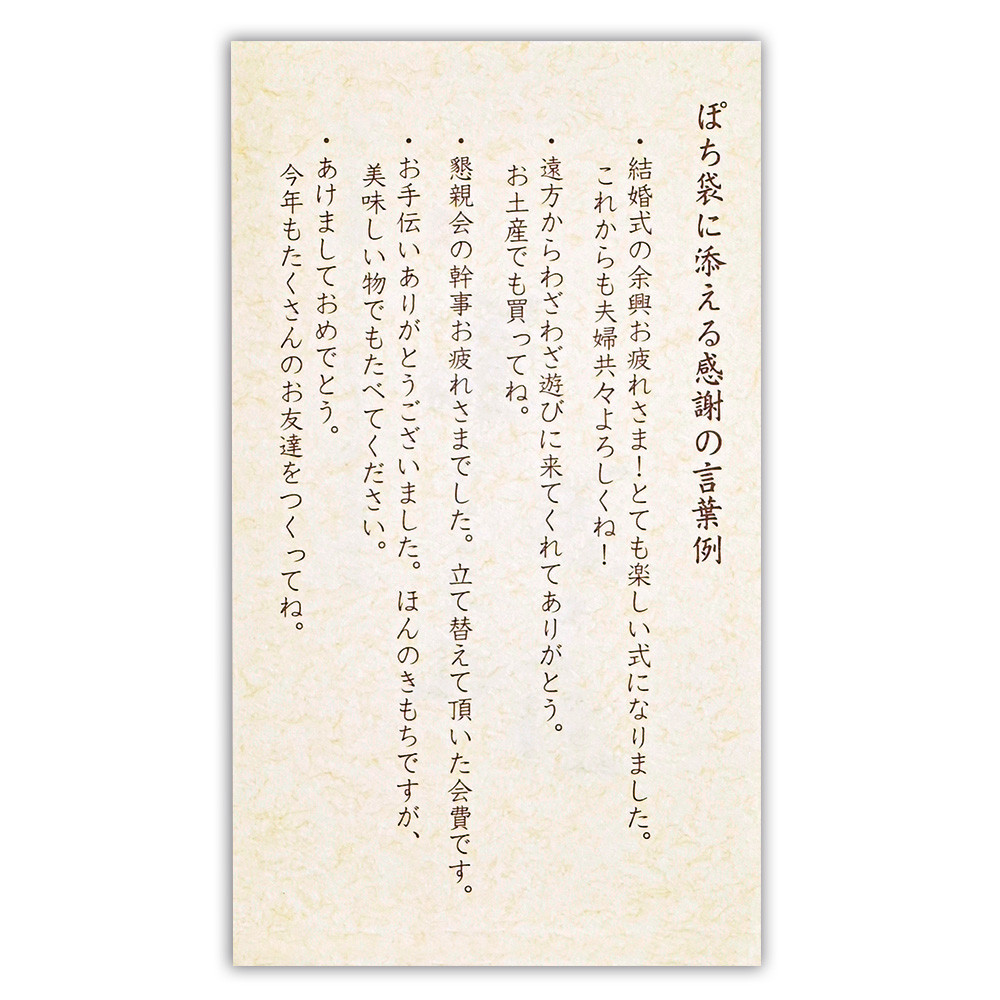 ぽち袋に添える感謝の言葉例
・結婚式の余興お疲れさま！とても楽しい式になりました。
これからも夫婦共々よろしくね！
・遠方からわざわざ遊びに来てくれてありがとう。
お土産でも買ってね。
・懇親会の幹事お疲れさまでした。立て替えて頂いた会費です。
・お手伝いありがとうございました。ほんのきもちですが、
美味しい物でもたべてください。
・あけましておめでとう。
今年もたくさんのお友達をつくってね。